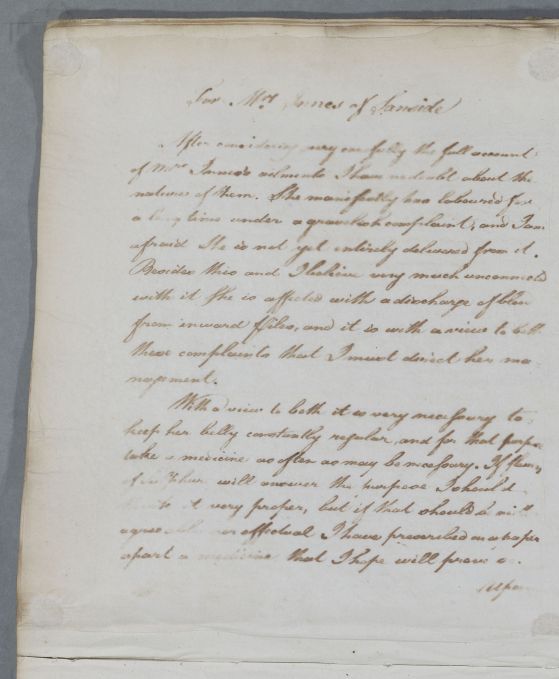 For Mrs Innes of Sanside
After considering very carefully the full account
of Mrs Innes's ailments I have no doubt about the
nature of them. She manifestly has laboured for
a long time under a gravelish complaint, and I am
afraid she is not yet entirely delivered from it.
Besides this and I believe very much unconnected
with it She is affected with a discharge of blood
from inward Piles, and it is with a view to both
these complaints that I must direct her ma
nagement.
With a view to both it is very necessary to
keep her belly constantly regular, and for that purpose
take a medicine as often as may be necessary. If flowers
of Sulphur will answer the purpose I should
think it very proper, but if that should not
agree or effectual I have prescribed on a paper
apart a medicine that I hope will prove so.
Upon